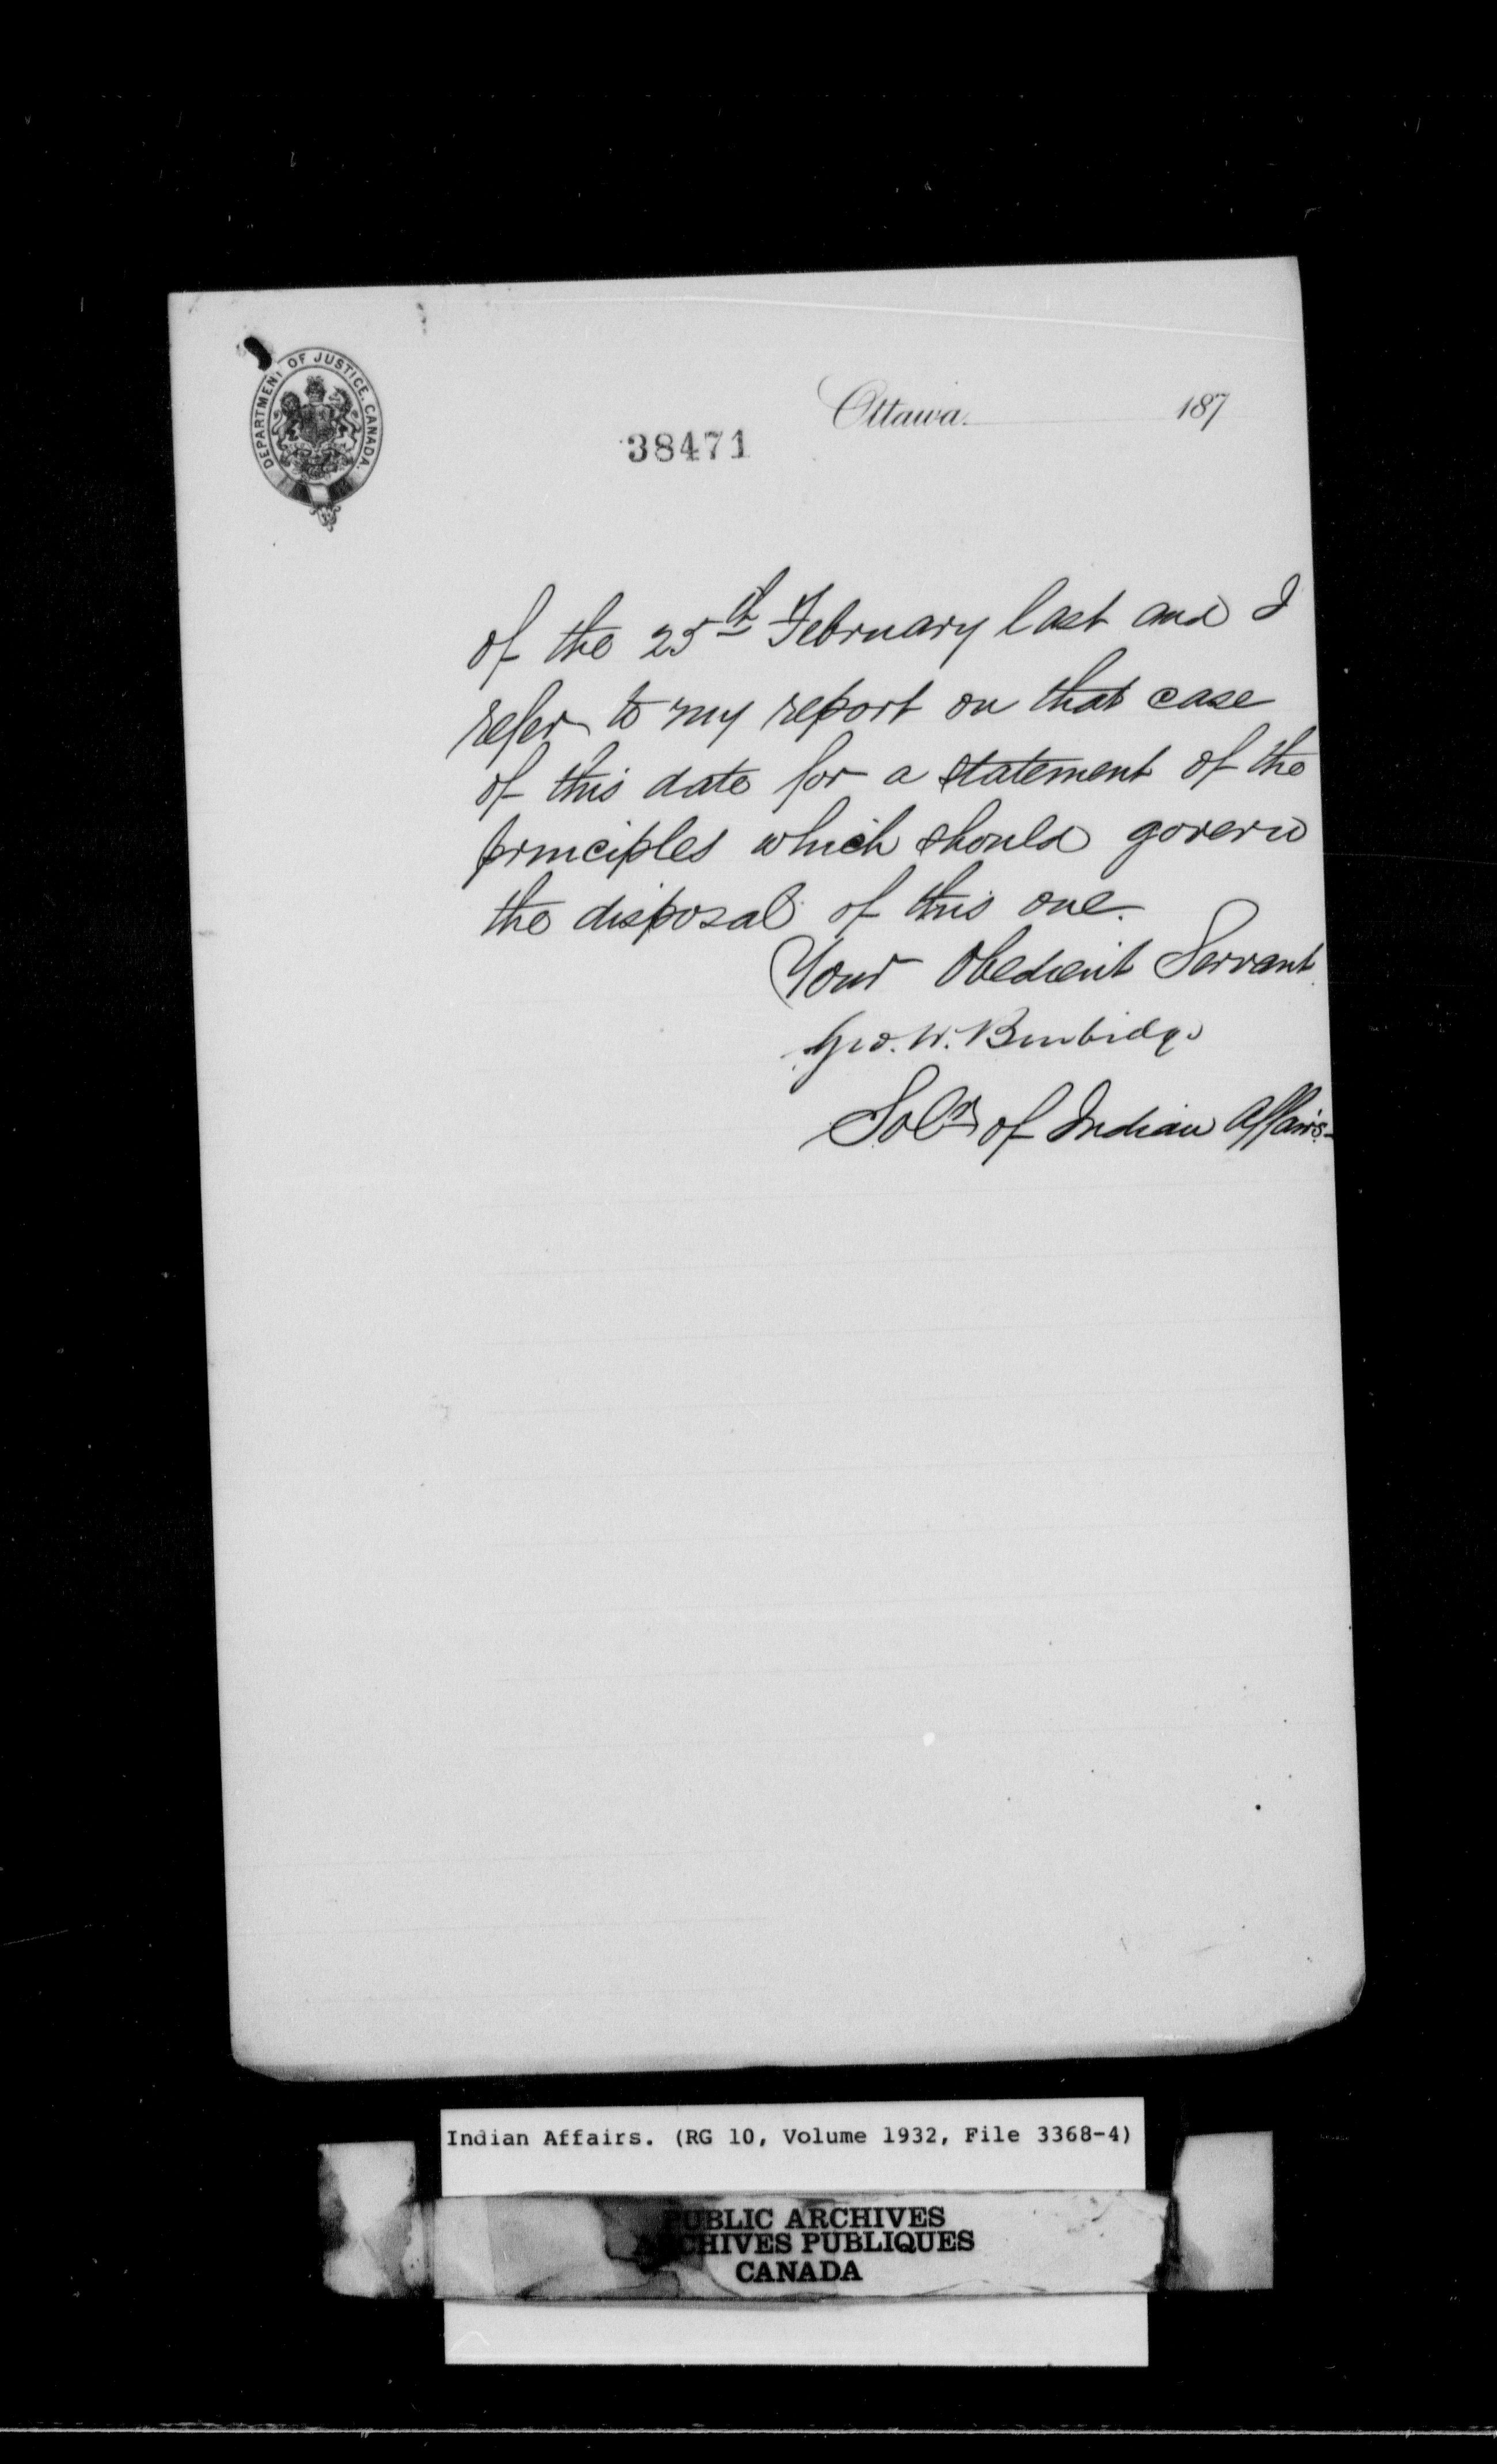 DEPARTMENT OF JUSTICE, CANADA.
Ottawa. 187
38471
of the 25th February last and I
refer to my report on that case
of this date for a statement of the
principles which should govern
the disposal of this one.
Your Obedient Servant
Geo. W. Burbidge
Solr of Indian Affairs.
Indian Affairs. (RG 10, Volume 1932, File 3368-4)
PUBLIC ARCHIVES
ARCHIVES PUBLIQUES
CANADA